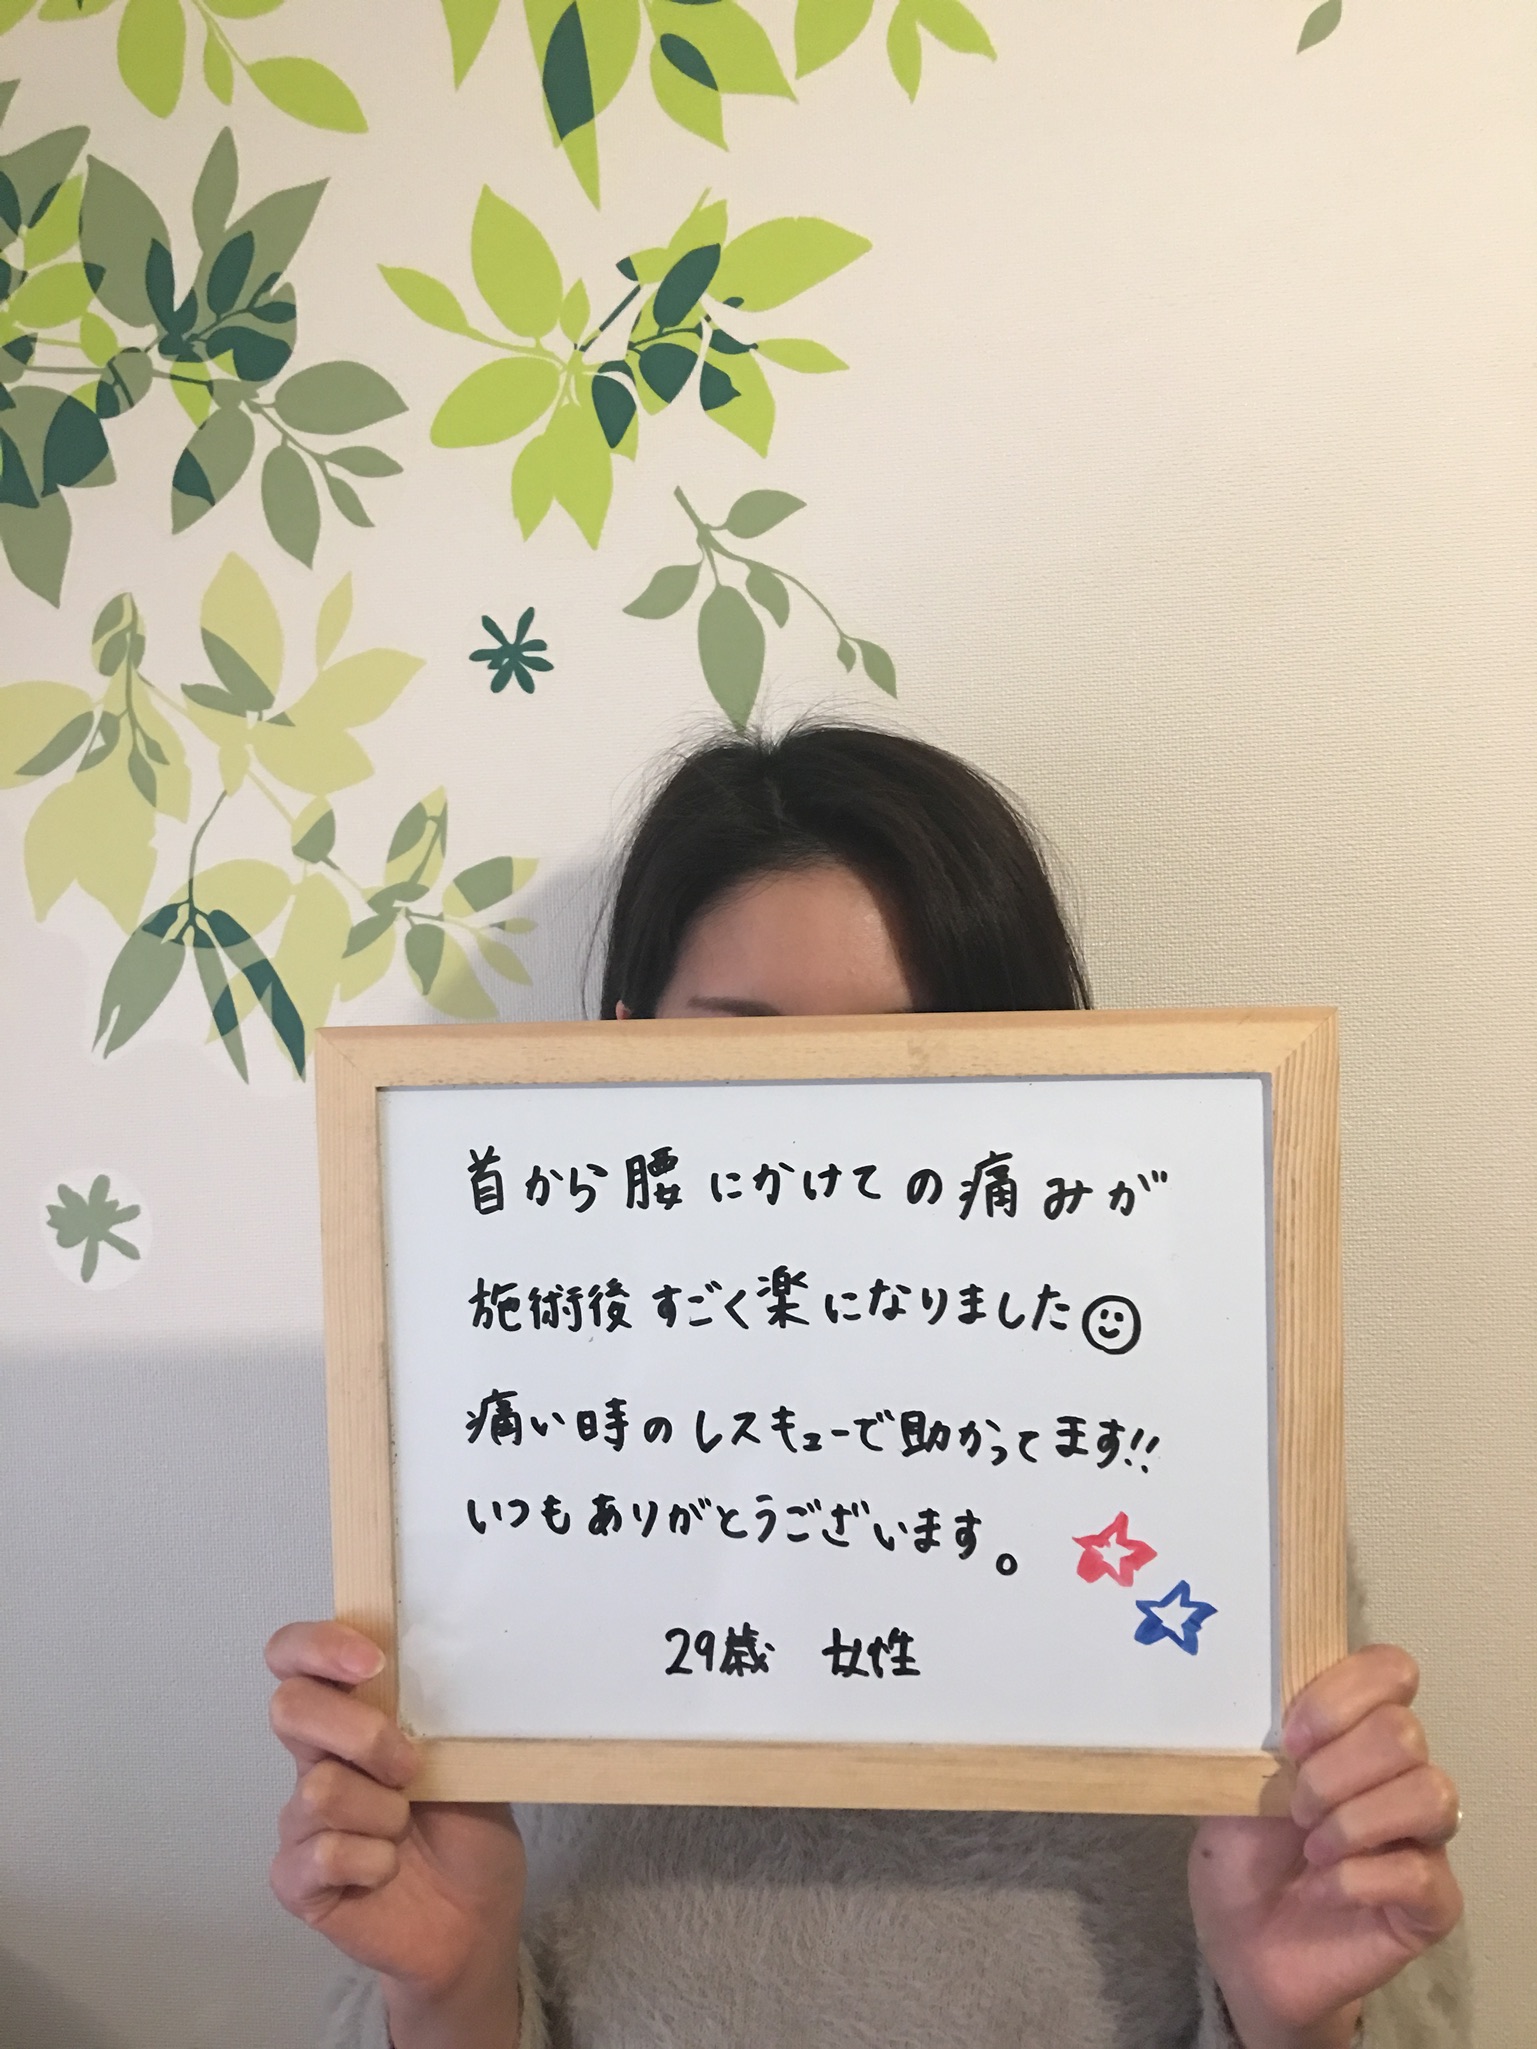 首から腰にかけての痛みが
施術後すごく楽になりました☺
痛い時のレスキューで助かってます!!
いつもありがとうございます。
29歳 女性